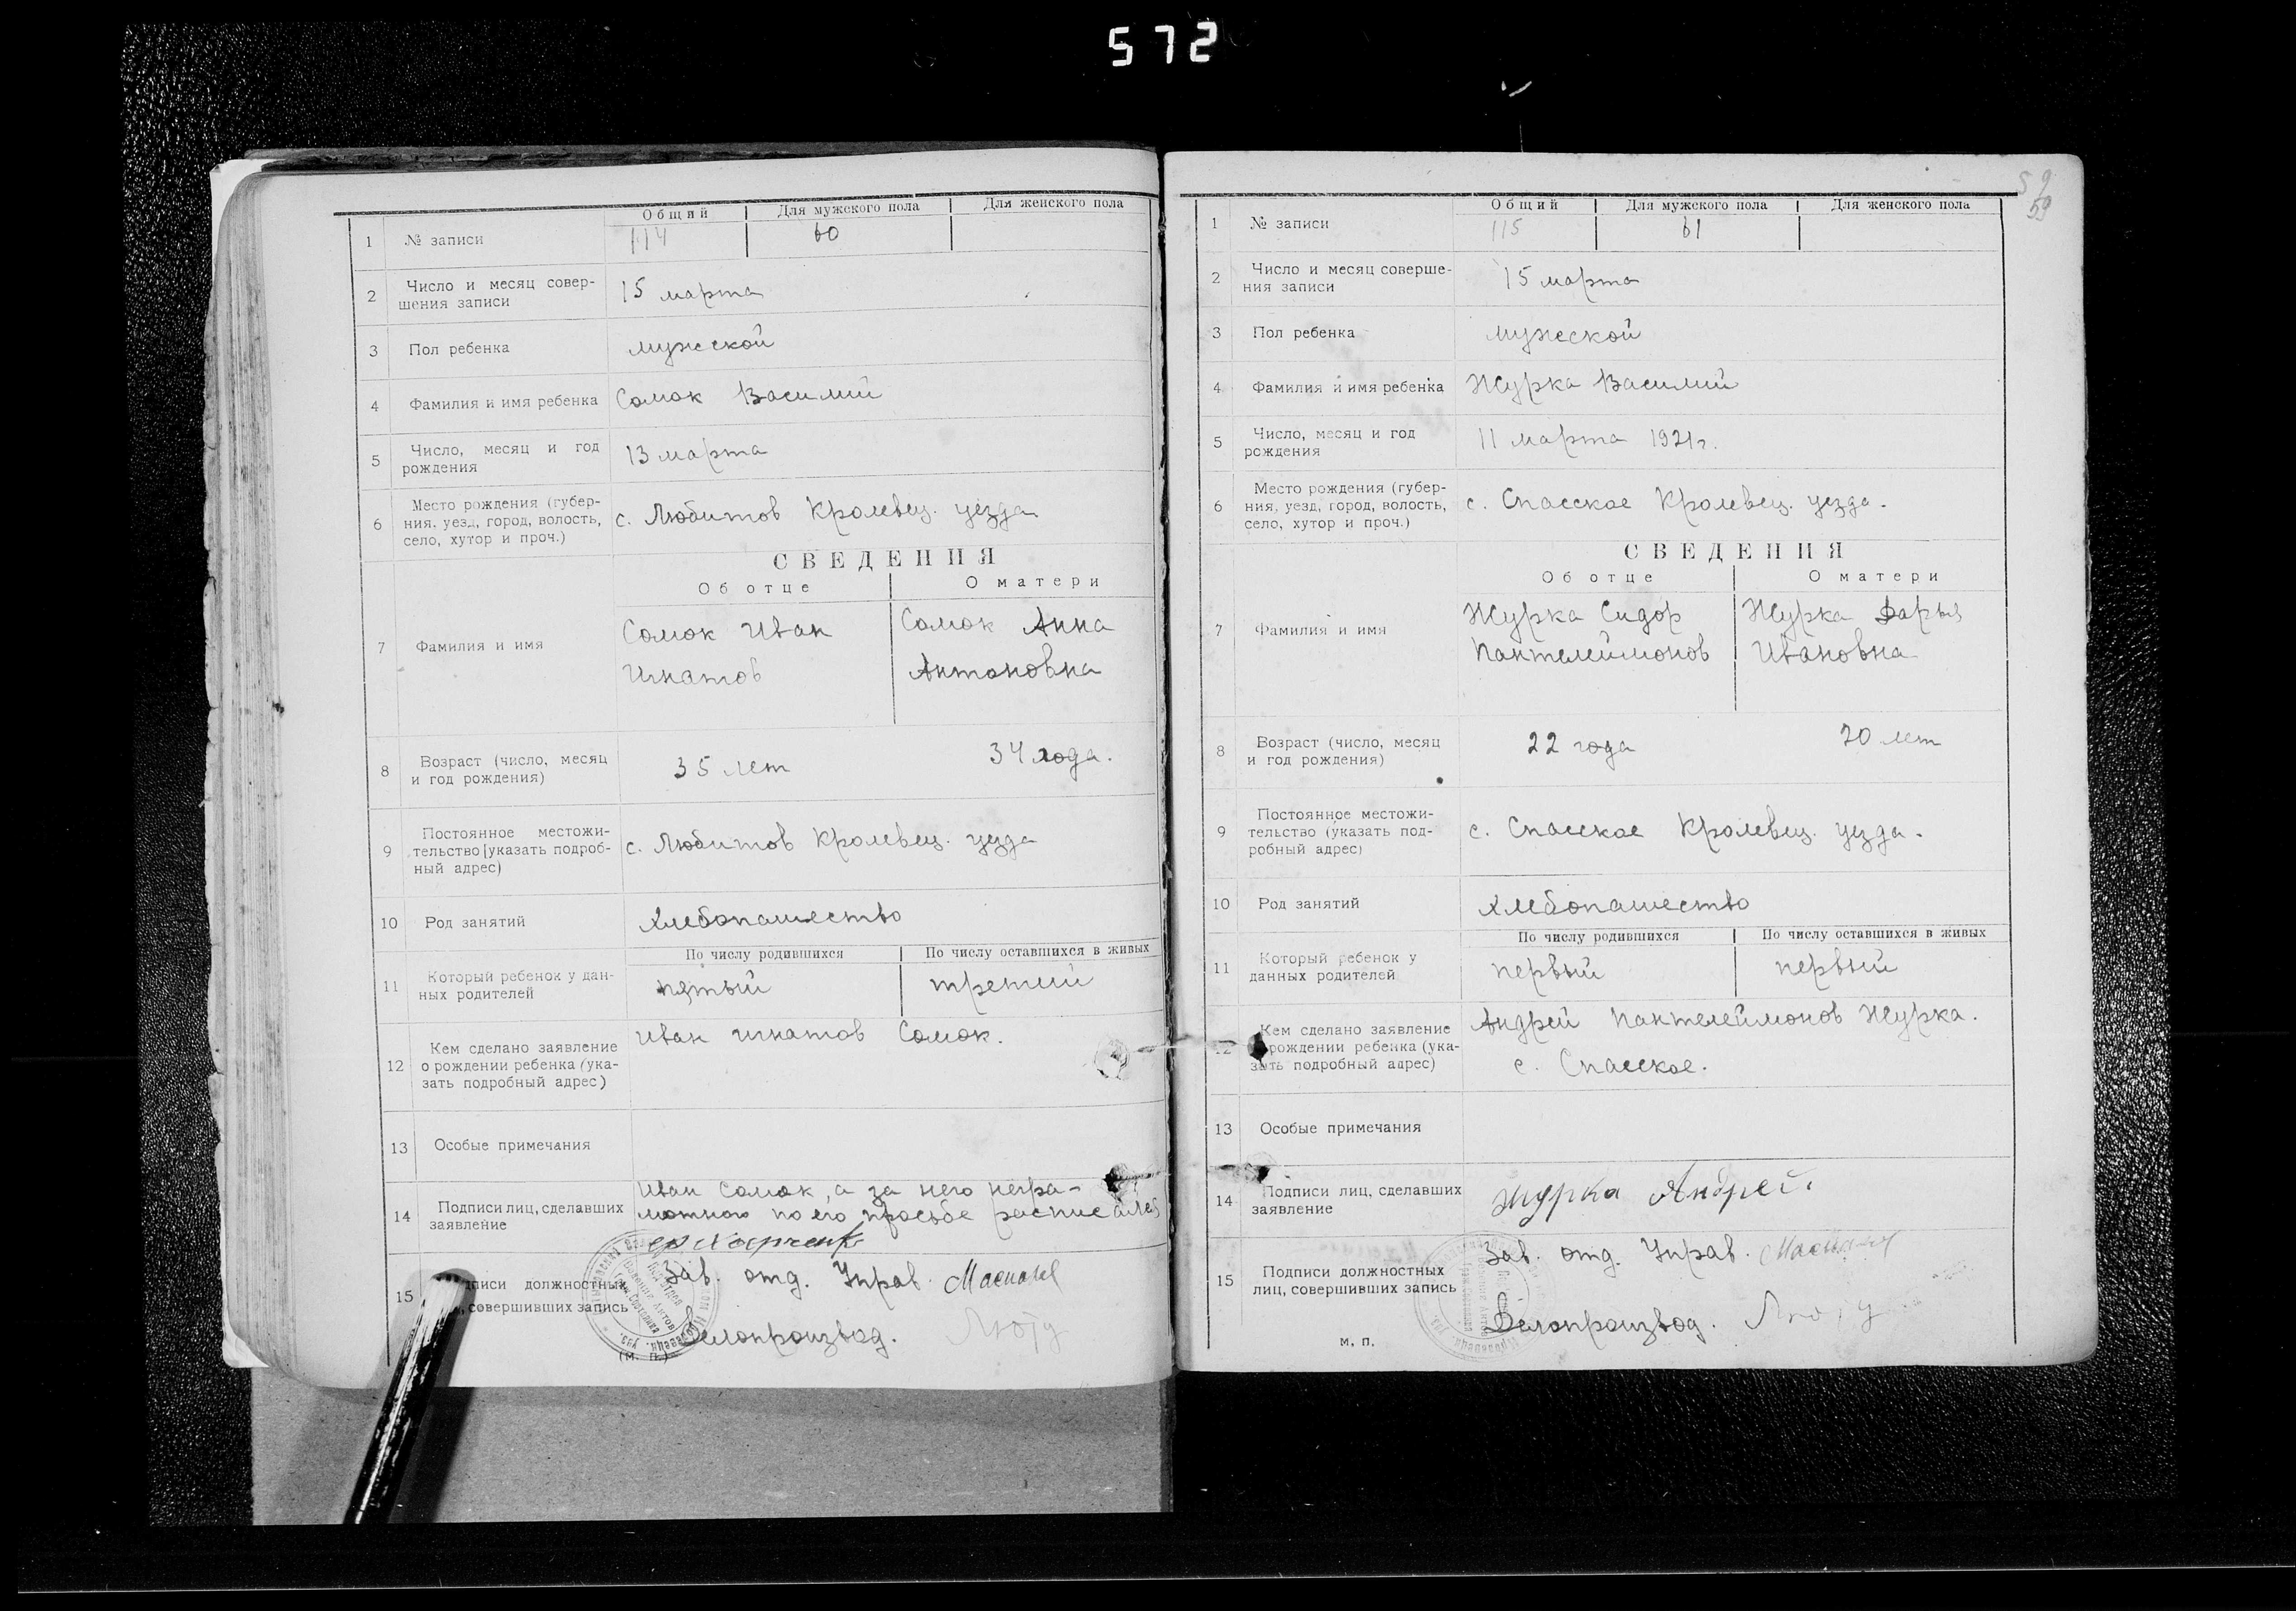 572
Общий Для мужского пола Для женского пола
1 № записи 114 60
2 Число и месяц совер-
шения записи 15 марта
3 Пол ребенка мужеской
4 Фамилия и имя ребенка Сомок Василий
5 Число, месяц и год
рождения 13 марта
6 Место рождения (губер-
ния, уезд, город, волость,
село, хутор и проч.) с. Любитов Кролевец. уезда
СВЕДЕНИЯ
Об отце О матери
7 Фамилия и имя
Сомок Иван Сомок Анна
Игнатов Антоновна
8 Возраст (число, месяц
и год рождения) 35 лет 34 года.
9 Постоянное местожи-
тельство [указать подроб-
ный адрес) с. Любитов Кролевец. уезда
10 Род занятий хлебопашество
По числу родившихся По числу оставшихся в живых
11 Который ребенок у дан-
ных родителей пятый третий
12 Кем сделано заявление
о рождении ребенка (ука-
зать подробный адрес) Иван Игнатов Сомок.
13 Особые примечания
14 Подписи лиц, сделавших
заявление
Иван Сомок, а за него негра-
мотного по его просьбе расписался
15 должностных
совершивших запись
Зав. отд. Управ.
Делопроизвод.
(м. п.)
59
59
Общий Для мужского пола Для женского пола
1 № записи 115 61
2 Число и месяц соверше-
ния записи 15 марта
3 Пол ребенка мужеской
4 Фамилия и имя ребенка Журка Василий
5 Число, месяц и год
рождения 11 марта 1921г.
6 Место рождения (губер-
ния, уезд, город, волость,
село, хутор и проч.) с. Спасское Кролевец. уезда.
СВЕДЕНИЯ
Об отце О матери
7 Фамилия и имя
Журка Сидор Журка Дарья
Пантелеймонов Ивановна
8 Возраст (число, месяц
и год рождения) 22 года 20 лет
9 Постоянное местожи-
тельство (указать под-
робный адрес) с. Спасское Кролевец. уезда.
10 Род занятий хлебопашество
По числу родившихся По числу оставшихся в живых
11 Который ребенок у
данных родителей первый первый
12 Кем сделано заявление
рождении ребенка (ука-
зать подробный адрес)
Андрей Пантелеймонов Журка.
с. Спасское.
13 Особые примечания
14 Подписи лиц, сделавших
заявление Журка Андрей.
15 Подписи должностных
лиц, совершивших запись
Зав. отд. Управ.
Делопроизвод.
м. п.